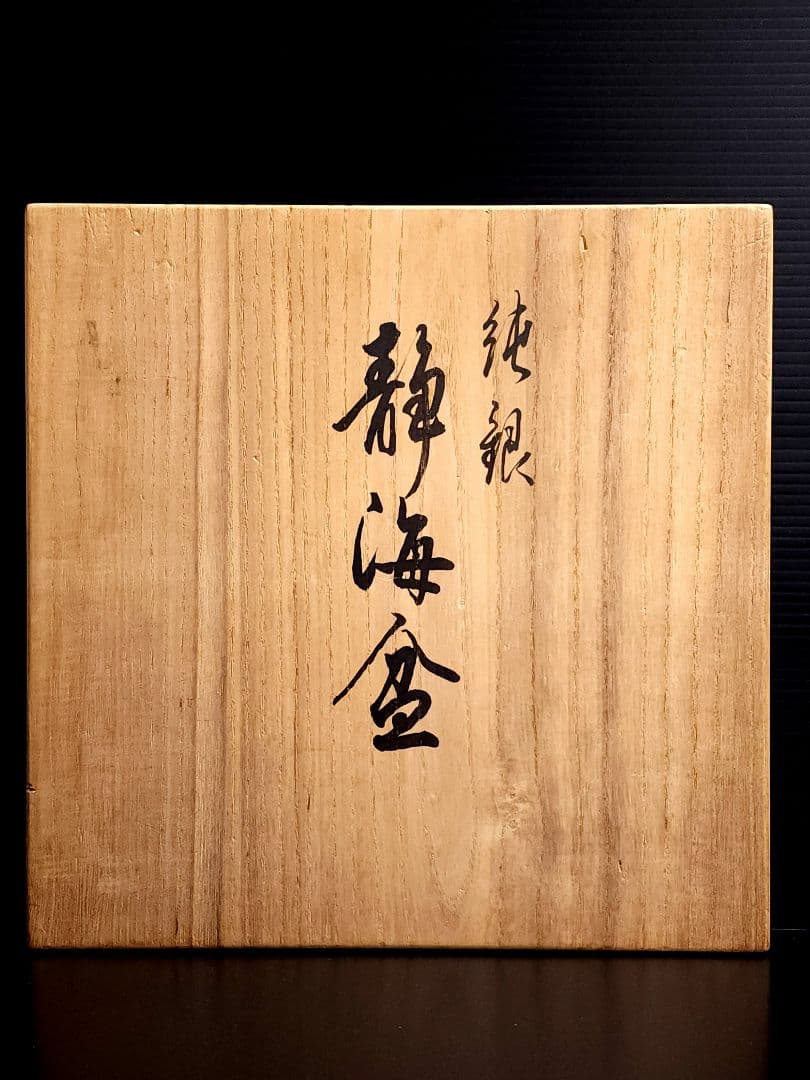 純銀
静海盆